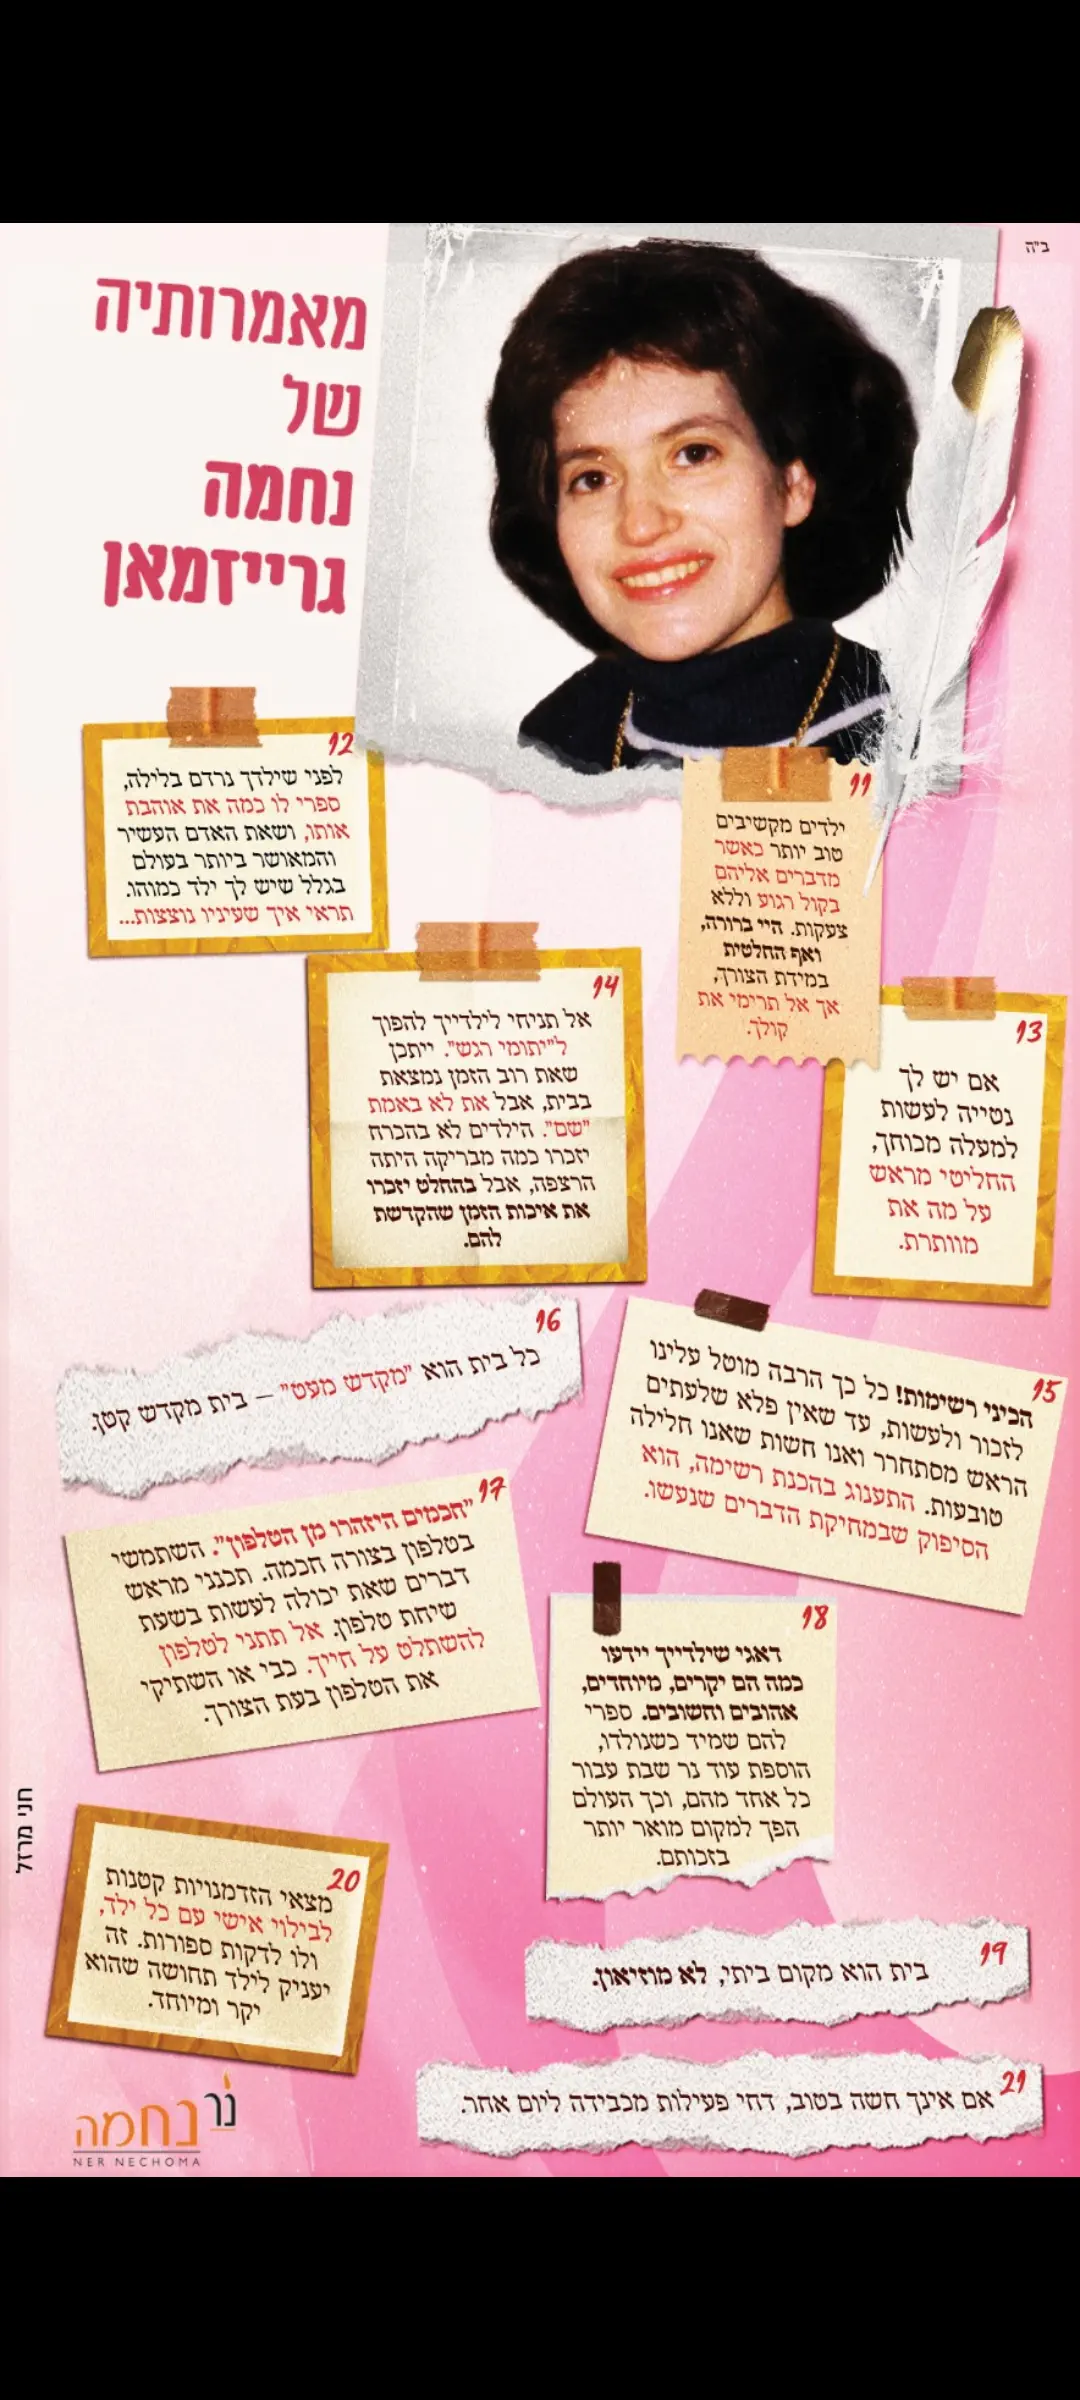 ב"ה
מאמרותיה
של
נחמה
גרייזמאן
11
ילדים מקשיבים
טוב יותר כאשר
מדברים אליהם
בקול רגוע וללא
צעקות. היי ברורה,
ואף החלטית
במידת הצורך,
אך אל תרימי את
קולך.
12
לפני שילדך נרדם בלילה,
ספרי לו כמה את אוהבת
אותו, ושאת האדם העשיר
והמאושר ביותר בעולם
בגלל שיש לך ילד כמוהו.
תראי איך שעיניו נוצצות...
13
אם יש לך
נטייה לעשות
למעלה מכוחך,
החליטי מראש
על מה את
מוותרת.
14
אל תניחי לילדייך להפוך
ל"יתומי רגש". ייתכן
שאת רוב הזמן נמצאת
בבית, אבל את לא באמת
"שם". הילדים לא בהכרח
יזכרו כמה מבריקה היתה
הרצפה, אבל בהחלט יזכרו
את איכות הזמן שהקדשת
להם.
15
הכיני רשימות! כל כך הרבה מוטל עלינו
לזכור ולעשות, עד שאין פלא שלעתים
הראש מסתחרר ואנו חשות שאנו חלילה
טובעות. התענוג בהכנת רשימה, הוא
הסיפוק שבמחיקת הדברים שנעשו.
16
כל בית הוא "מקדש מעט" – בית מקדש קטן.
17
"חכמים היזהרו מן הטלפון". השתמשי
בטלפון בצורה חכמה. תכנני מראש
דברים שאת יכולה לעשות בשעת
שיחת טלפון. אל תתני לטלפון
להשתלט על חייך. כבי או השתיקי
את הטלפון בעת הצורך.
18
דאגי שילדייך יידעו
כמה הם יקרים, מיוחדים,
אהובים וחשובים. ספרי
להם שמיד כשנולדו,
הוספת עוד נר שבת עבור
כל אחד מהם, וכך העולם
הפך למקום מואר יותר
בזכותם.
19
בית הוא מקום ביתי, לא מוזיאון.
20
מצאי הזדמנויות קטנות
לבילוי אישי עם כל ילד,
ולו לדקות ספורות. זה
יעניק לילד תחושה שהוא
יקר ומיוחד.
21
אם אינך חשה בטוב, דחי פעילות מכבידה ליום אחר.
חני מרזל
נר נחמה
NER NECHOMA